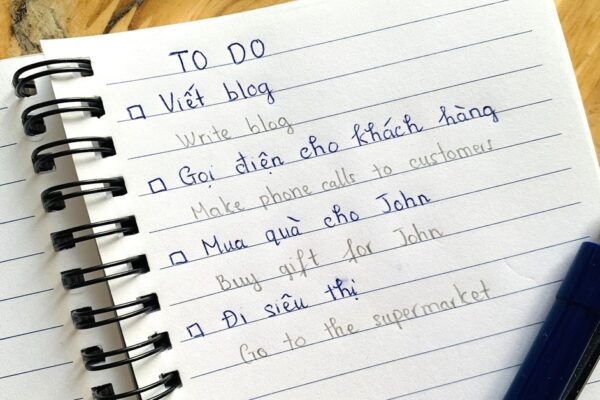 TO DO
Viết blog
Write blog
Gọi điện cho khách hàng
Make phone calls to customers
Mua quà cho John
Buy gift for John
Đi siêu thị
Go to the supermarket